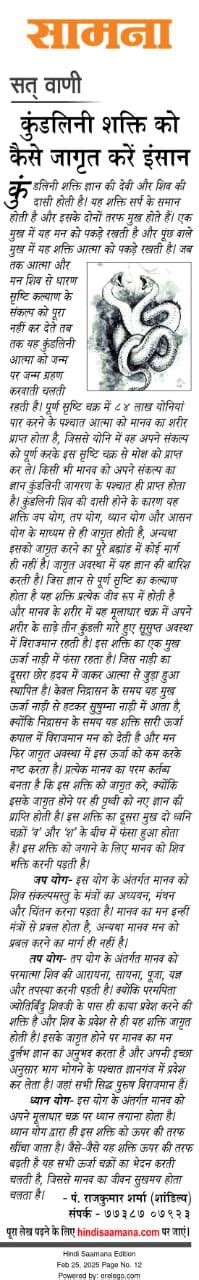 सामना
सत् वाणी
कुंडलिनी शक्ति को
कैसे जागृत करें इंसान
कुंडलिनी शक्ति ज्ञान की देवी और शिव की
दासी होती है। यह शक्ति सर्प के समान
होती है और इसके दोनों तरफ मुख होते हैं। एक
मुख में यह मन को पकड़े रखती है और पूंछ वाले
मुख में यह शक्ति आत्मा को पकड़े रखती है। जब
तक आत्मा और
मन शिव से धारण
सृष्टि कल्याण के
संकल्प को पूरा
नहीं कर देते तब
तक यह कुंडलिनी
आत्मा को जन्म
पर जन्म ग्रहण
करवाती चलती
रहती है। पूर्ण सृष्टि चक्र में ८४ लाख योनियां
पार करने के पश्चात आत्मा को मानव का शरीर
प्राप्त होता है, जिससे योनि में वह अपने संकल्प
को पूर्ण करके इस सृष्टि चक्र से मोक्ष को प्राप्त
कर ले। किसी भी मानव को अपने संकल्प का
ज्ञान कुंडलिनी जागरण के पश्चात ही प्राप्त होता
है। कुंडलिनी शिव की दासी होने के कारण यह
शक्ति जप योग, तप योग, ध्यान योग और आसन
योग के माध्यम से ही जागृत होती है, अन्यथा
इसको जागृत करने का पूरे ब्रह्मांड में कोई मार्ग
ही नहीं है। जागृत अवस्था में यह ज्ञान की बारिश
करती है। जिस ज्ञान से पूर्ण सृष्टि का कल्याण
होता है यह शक्ति प्रत्येक जीव रूप में होती है
और मानव के शरीर में यह मूलाधार चक्र में अपने
शरीर के साढ़े तीन कुंडली मारे हुए सुसुप्त अवस्था
में विराजमान रहती है। इस शक्ति का एक मुख
ऊर्जा नाड़ी में फंसा रहता है। जिस नाड़ी का
दूसरा छोर हृदय में जाकर आत्मा से जुड़ा हुआ
स्थापित है। केवल निद्रासन के समय यह मुख
ऊर्जा नाड़ी से हटकर सुषुम्ना नाड़ी में आता है,
क्योंकि निद्रासन के समय यह शक्ति सारी ऊर्जा
कपाल में विराजमान मन को देती है और मन
फिर जागृत अवस्था में इस ऊर्जा को कम करके
नष्ट करता है। प्रत्येक मानव का परम कर्तव्य
बनता है कि इस शक्ति को जागृत करे, क्योंकि
इसके जागृत होने पर ही पृथ्वी को नए ज्ञान की
प्राप्ति होती है। इस शक्ति का दूसरा मुख दो ध्वनि
चक्रों 'व' और 'श' के बीच में फंसा हुआ होता
है। इस शक्ति को जगाने के लिए मानव को शिव
भक्ति करनी पड़ती है।
जप योग- इस योग के अंतर्गत मानव को
शिव संकल्पमस्तु के मंत्रों का अध्ययन, मंथन
और चिंतन करना पड़ता है। मानव का मन इन्हीं
मंत्रों से प्रबल होता है, अन्यथा मानव मन को
प्रबल करने का मार्ग ही नहीं है।
तप योग- तप योग के अंतर्गत मानव को
परमात्मा शिव की आराधना, साधना, पूजा, यज्ञ
और तपस्या करनी पड़ती है। क्योंकि परमपिता
ज्योतिर्बिंदु शिवजी के पास ही काया प्रवेश करने की
शक्ति है और शिव के प्रवेश से ही यह शक्ति जागृत
होती है। इसके जागृत होने पर मानव का मन
दुर्लभ ज्ञान का अनुभव करता है और अपनी इच्छा
अनुसार भाग भोगने के पश्चात ज्ञानगंज में प्रवेश
कर लेता है। जहां सभी सिद्ध पुरुष विराजमान हैं।
ध्यान योग- इस योग के अंतर्गत मानव को
अपने मूलाधार चक्र पर ध्यान लगाना होता है।
ध्यान योग द्वारा ही इस शक्ति को ऊपर की तरफ
खींचा जाता है। जैसे-जैसे यह शक्ति ऊपर की तरफ
बढ़ती है यह सभी ऊर्जा चक्रों का भेदन करती
चलती है, जिससे मानव का जीवन सुखमय होता
चलता है। - पं. राजकुमार शर्मा (शांडिल्य)
संपर्क - ७७३८७ ०७९२३
पूरा लेख पढ़ने के लिए hindisaamana.com पर जाएं।
Hindi Saamana Edition
Feb 25, 2025 Page No. 12
Powered by: erelego.com